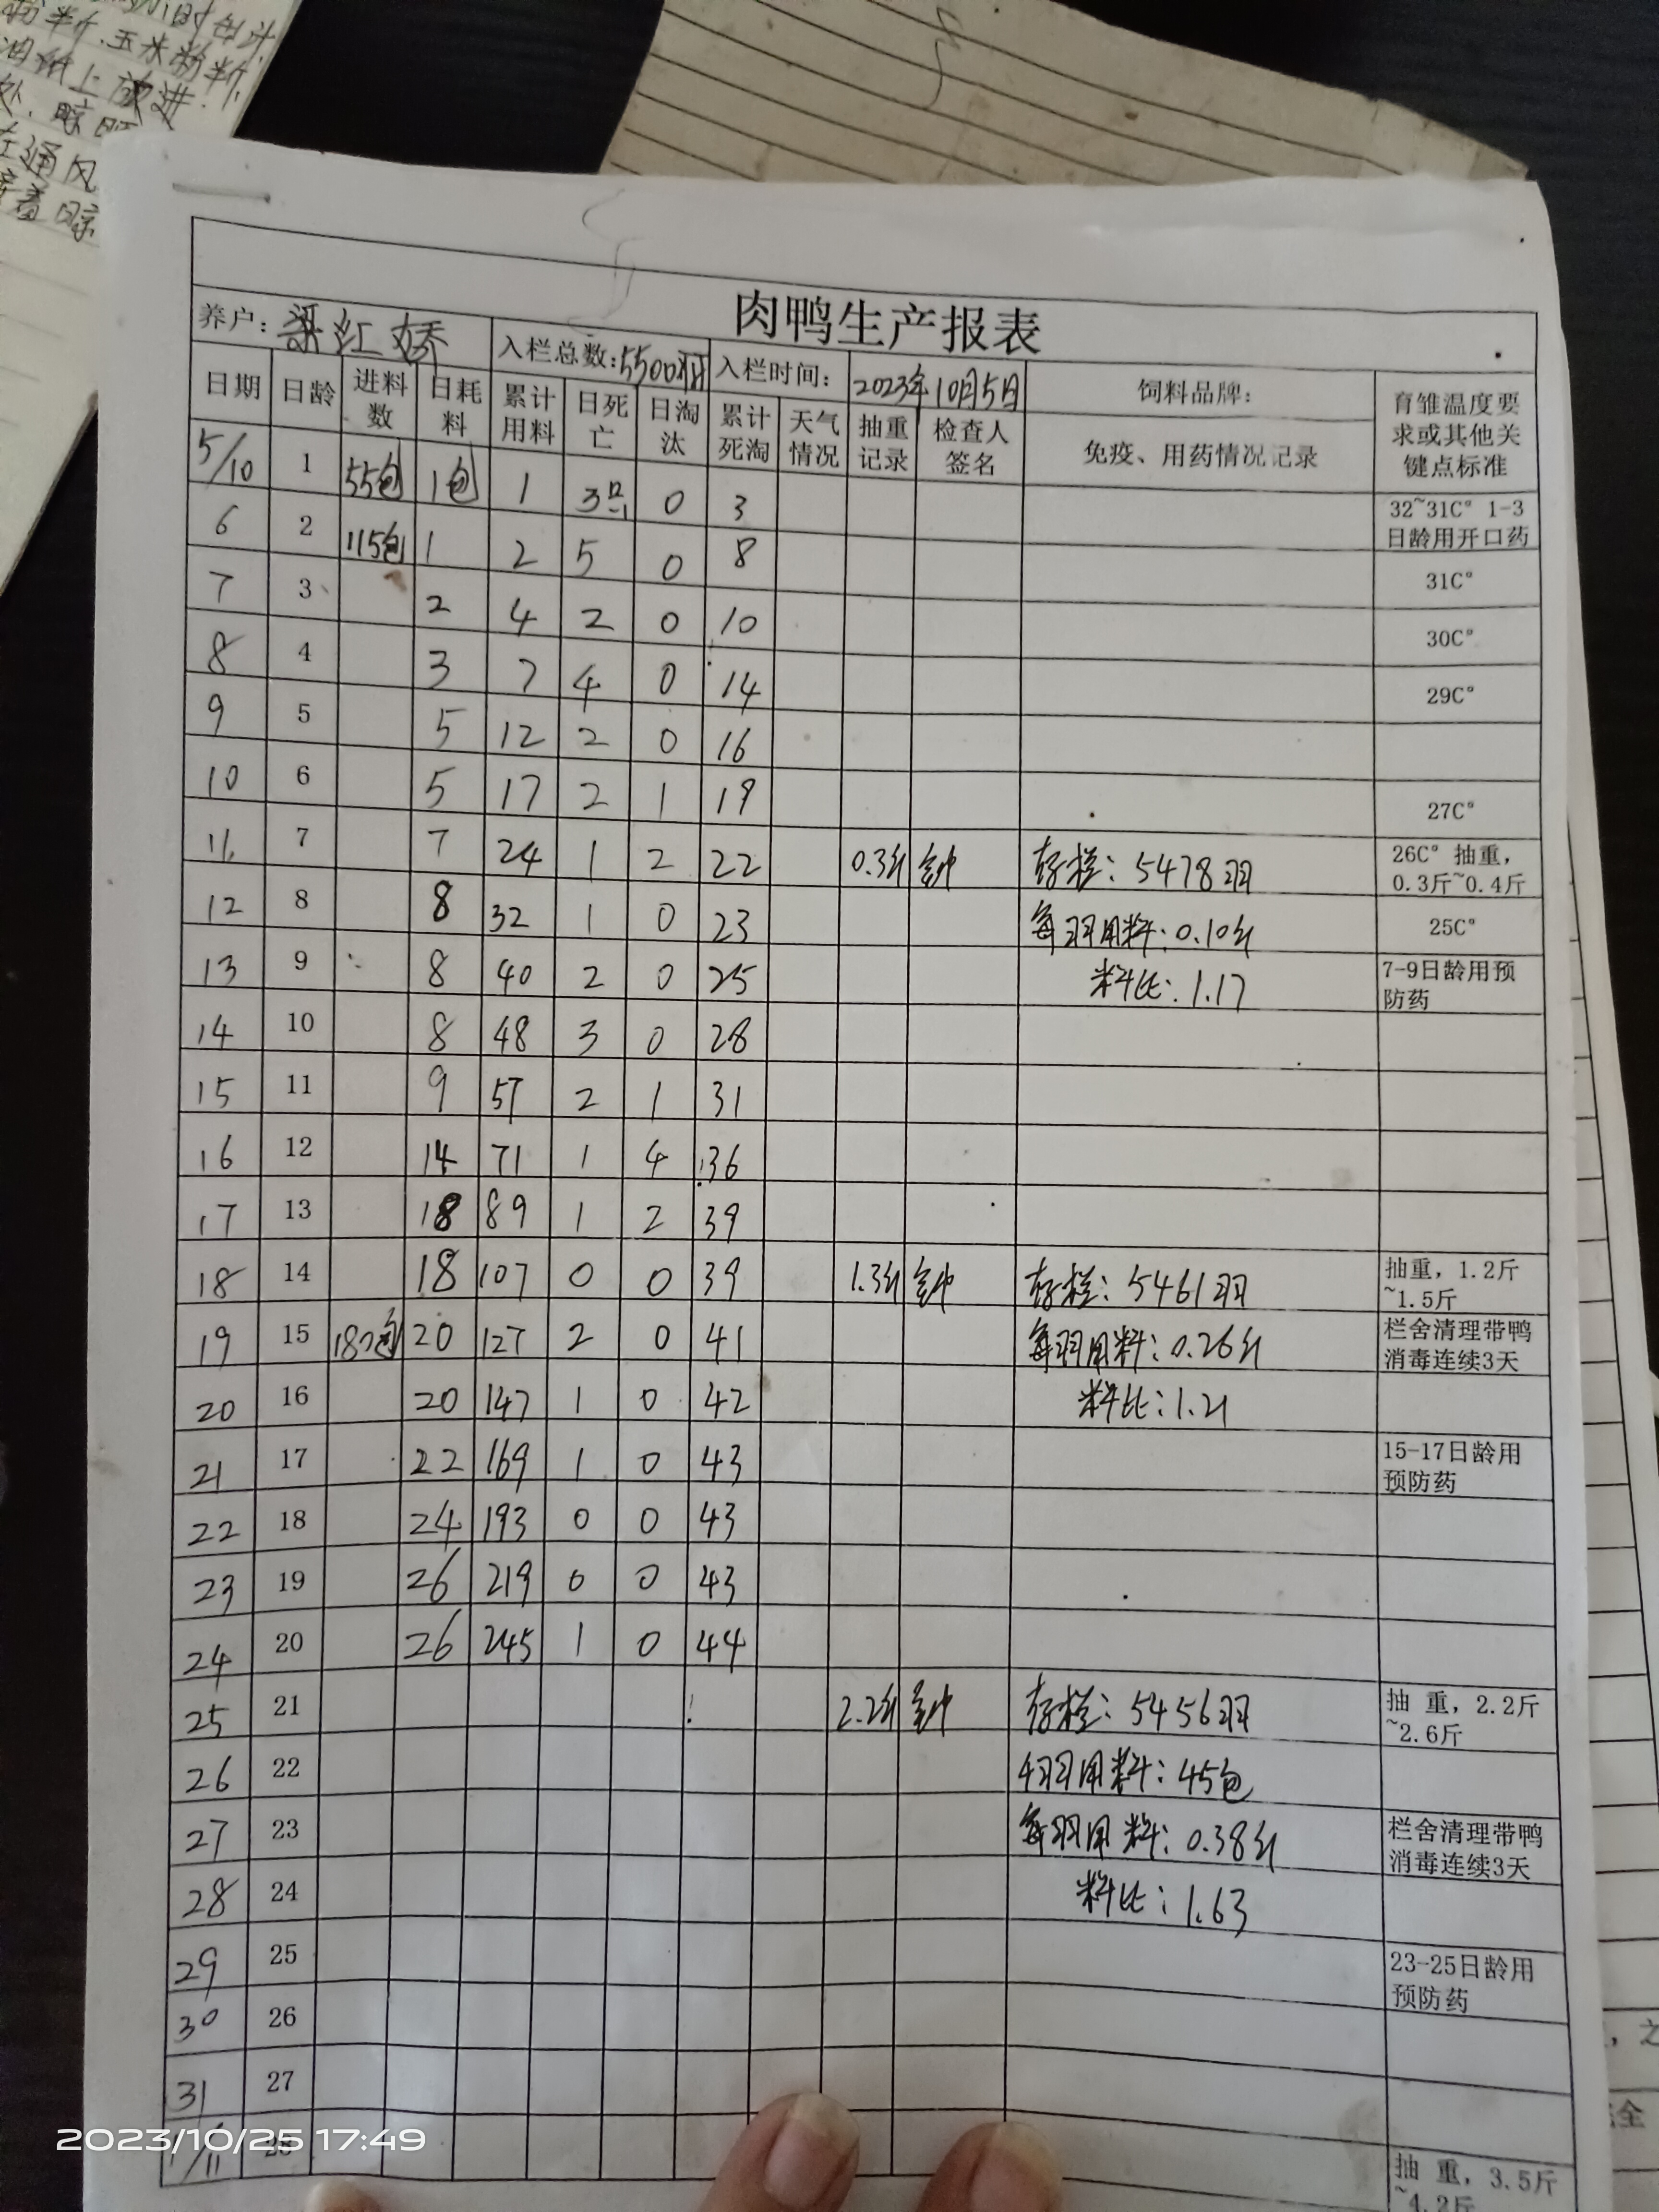 粉半斤.玉米粉半斤.
油纸上放进.
处.晾
在通风
接着晾
肉鸭生产报表
养户：梁江娇 入栏总数：5500羽 入栏时间： 2023年10月5日 饲料品牌： 育雏温度要求或其他关键点标准
日期 日龄 进料数 日耗料 累计用料 日死亡 日淘汰 累计死淘 天气情况 抽重记录 检查人签名 免疫、用药情况记录
5/10 1 55包 1包 1 3只 0 3 32~31C° 1-3日龄用开口药
6 2 115包 1 2 5 0 8 31C°
7 3 2 4 2 0 10 30C°
8 4 3 7 4 0 14 29C°
9 5 5 12 2 0 16
10 6 5 17 2 1 19 27C°
11 7 7 24 1 2 22 0.3斤 存栏：5478羽 26C° 抽重，0.3斤~0.4斤
12 8 8 32 1 0 23 每羽用料：0.10斤 25C°
13 9 8 40 2 0 25 料比：1.17 7-9日龄用预防药
14 10 8 48 3 0 28
15 11 9 57 2 1 31
16 12 14 71 1 4 36
17 13 18 89 1 2 39
18 14 18 107 0 0 39 1.3斤 存栏：5461羽 抽重，1.2斤~1.5斤
19 15 187包 20 127 2 0 41 每羽用料：0.26斤 栏舍清理带鸭消毒连续3天
20 16 20 147 1 0 42 料比：1.21
21 17 22 169 1 0 43 15-17日龄用预防药
22 18 24 193 0 0 43
23 19 26 219 0 0 43
24 20 26 245 1 0 44
25 21 2.2斤 存栏：5456羽 抽 重，2.2斤~2.6斤
26 22 用料：45包
27 23 每羽用料：0.38斤 栏舍清理带鸭消毒连续3天
28 24 料比：1.63
29 25 23-25日龄用预防药
30 26
31 27
1/11 28 抽 重，3.5斤~4.2斤
，之
全
2023/10/25 17:49